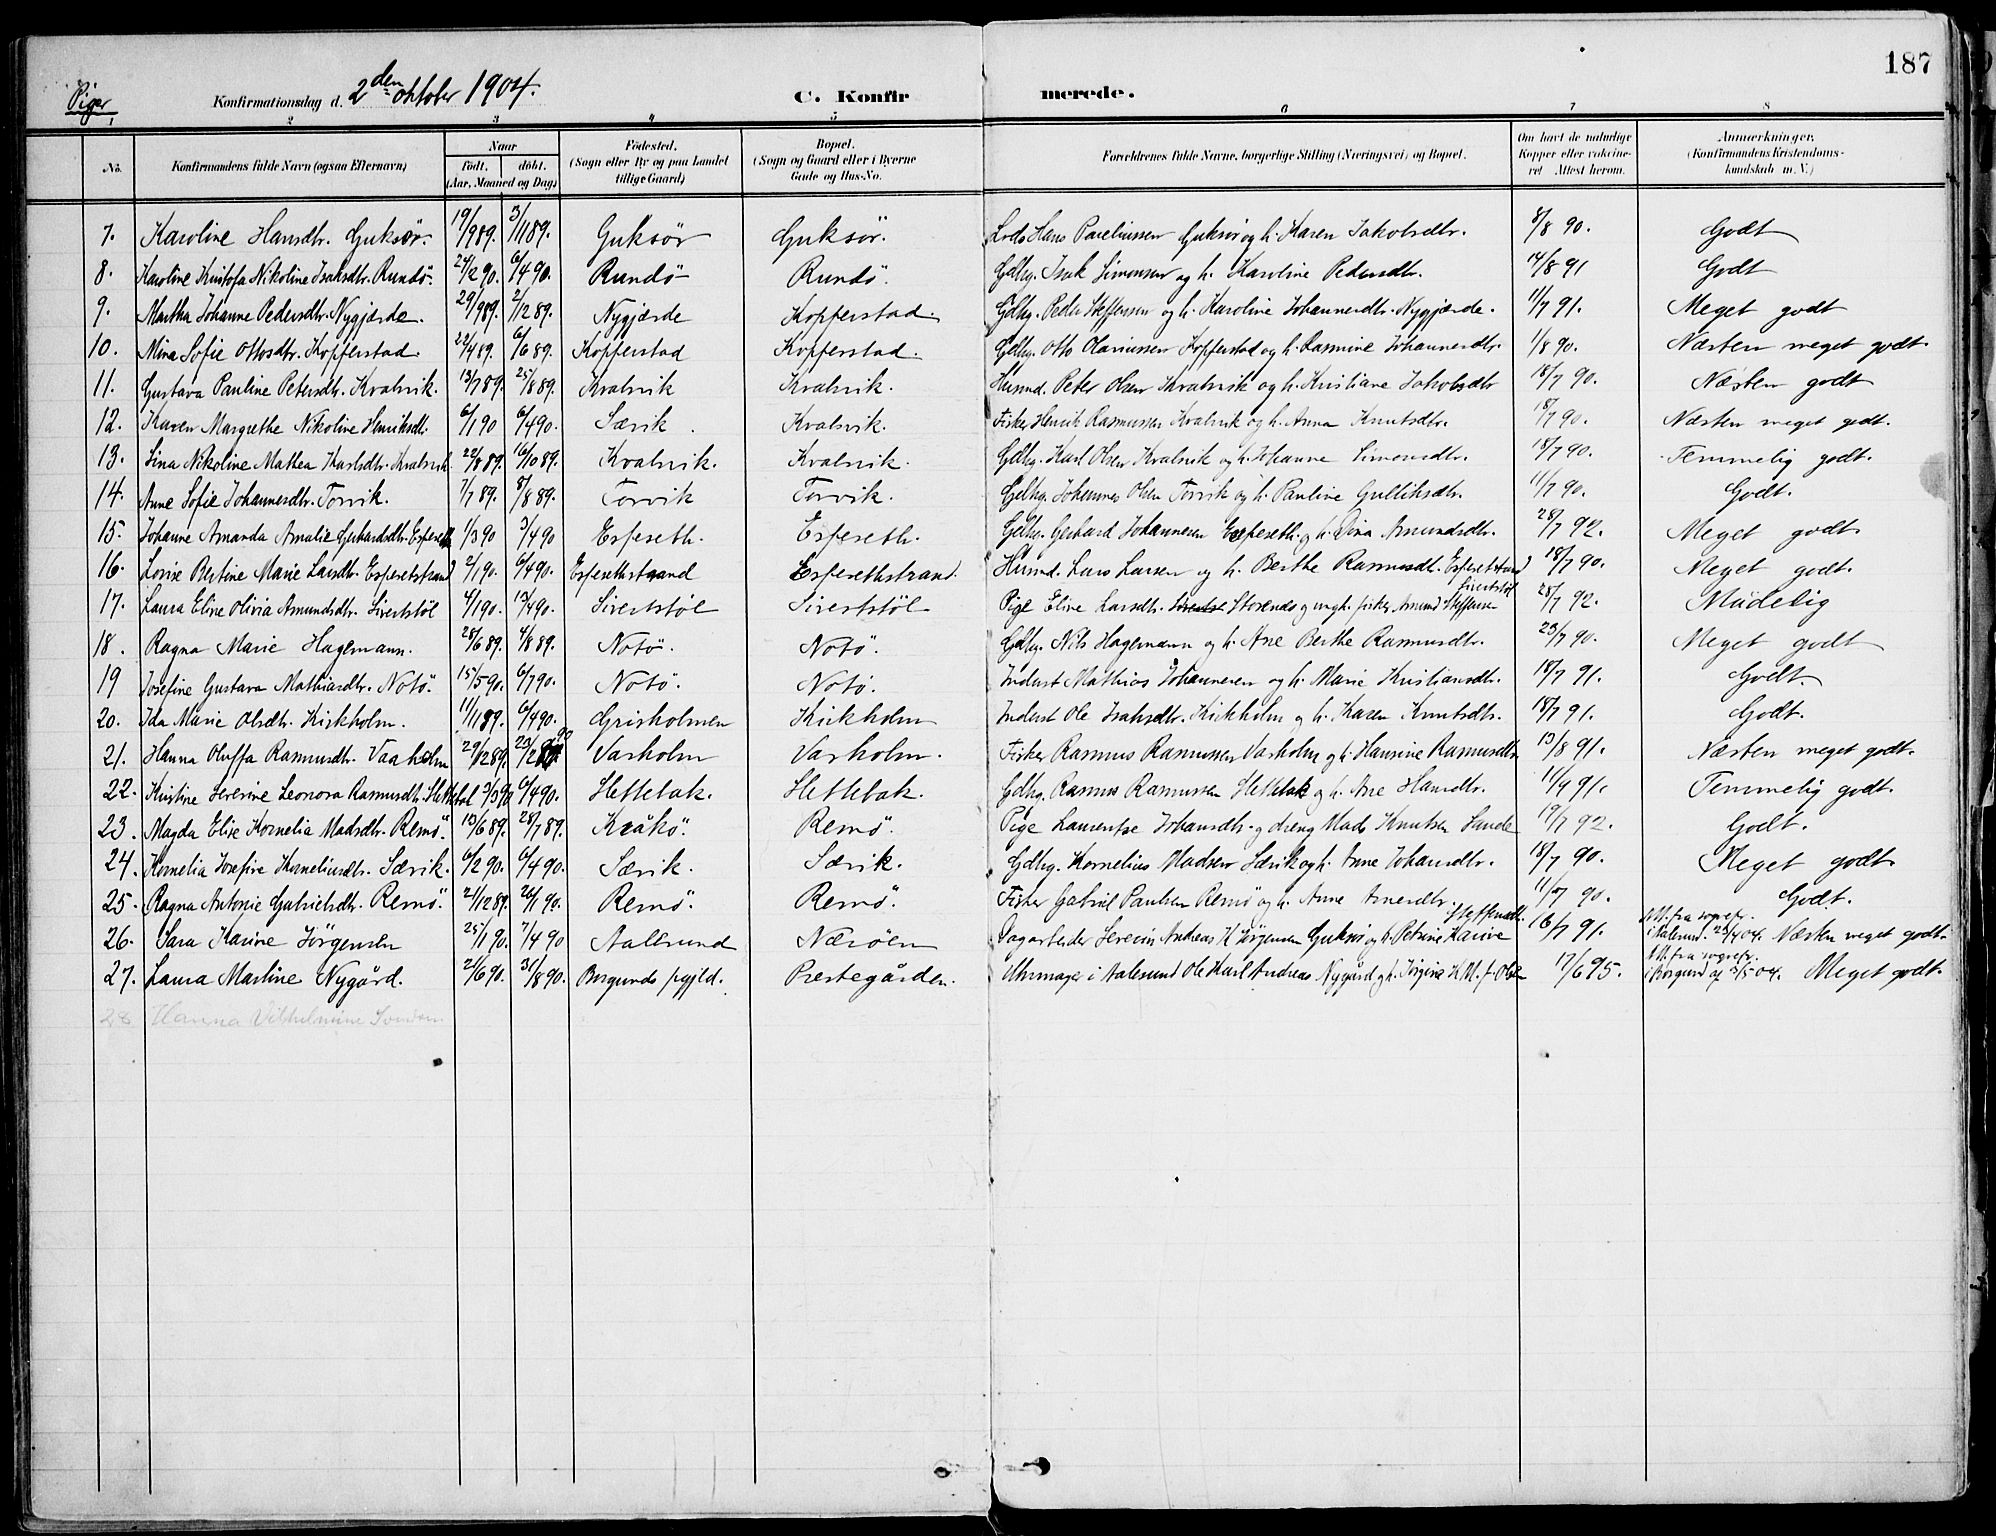 187
Piger Konfirmationsdag d. 2den oktober 1904. C. Konfirmerede.
1 2 3 4 5 6 7 8
No. Konfirmandens fulde Navn (ogsaa Efternavn) Naar født, døbt. (Aar, Maaned og Dag) Fødested. (Sogn eller By og paa Landet tillige Gaard) Bopæl. (Sogn og Gaard eller i Byerne Gade og Hus-No. Forældrenes fulde Navne, borgerlige Stilling (Næringsvei) og Bopæl. Om havt de naturlige Kopper eller vakcineret Attest herom. Anmærkninger. (Konfirmandens Kristendomskundskab m. V.)
7. Karoline Hansdtr. Guksør. 19/9 89. 3/11 89. Guksør Guksør. Lods Hans Pareliussen Guksør og h. Karen Jakobsdtr. 8/8 90. Godt
8. Karoline Kristofa Nikoline Isaksdtr. Rundö. 24/2 90. 6/4 90. Rundö Rundö. Gdbg. Isak Simonsen og h. Karoline Pedersdtr. 14/8 91 Godt
9. Martha Johanne Pedersdtr. Nygjærde. 29/9 89. 2/12 89. Nygjærde Kopperstad. Gdbg. Peder Steffensen og h. Karoline Johannesdtr. Nygjærde. 11/7 91. Meget godt
10. Mina Sofie Ottosdtr. Kopperstad. 22/4 89. 6/6 89. Kopperstad Kopperstad. Gdbg. Otto Olariussen Kopperstad og h. Rasmine Johannesdtr. 1/8 90. Næsten meget godt.
11. Gustava Pauline Petersdtr. Kvalsvik. 13/7 89. 25/8 89. Kvalsvik Kvalsvik. Husmd. Peter Olsen Kvalsvik og h. Kristiane Jakobsdtr 18/7 90. Næsten godt
12. Karen Margrethe Nikoline Henriksdtr. 6/1 90 6/4 90. Særik. Kvalsvik. Fisker Henrik Rasmussen Kvalsvik og h. Anna Knutsdtr. 18/7 90. Næsten meget godt.
13. Sina Nikoline Mathea Karlsdtr. Kvalsvik 22/8 89. 16/10 89. Kvalsvik. Kvalsvik. Gdbg. Karl Olsen Kvalsvik og h. Johanne Simonsdtr. 18/7 90. Temmelig godt.
14. Anne Sofie Johannesdtr. Torvik. 7/7 89. 8/8 89. Torvik Torvik. Gdbg. Johannes Olsen Torvik og h. Pauline Gulliksdtr. 11/7 90. Godt.
15. Johanne Amanda Amalie Gerhardsdtr. Espeseth 1/3 90 3/4 90 Espeseth. Espeseth. Gdbg. Gerhard Johannesen Espeseth og h. Dina Amundsdtr. 28/7 92. Meget godt
16. Lovise Bertine Marie Larsdtr. Espesetstrand 2/1 90. 6/4 90. Espesethstrand Espesethstrand. Husmd. Lars Larsen og h. Berthe Rasmusdtr. Espesetstrand 18/7 90. Meget godt.
17. Laura Eline Olivia Amundsdtr. Sivertstöl 4/1 90. 13/4 90. Sivertstöl Sivertstöl Pige Eline Larsdtr. Storenes og ungk. fisker Amund Steffensen Sivertstöl 28/7 92. Mådelig
18. Ragna Marie Hagemann. 28/6 89. 4/8 89. Notö. Notö. Gdbg. Nils Hagemann og h. Ane Berthe Rasmusdtr. 23/7 90. Meget godt
19 Josefine Gustava Mathiasdtr. Notö. 15/5 90. 6/7 90. Notö. Notö. Inderst Mathias Johannesen og h. Marie Kristiansdtr. 18/7 91. Godt.
20. Ida Marie Olsdtr. Kirkholm. 11/11 89. 6/4 90. Grisholmen Kirkholm Inderst Ole Isaksdtr. Kirkholm og h. Karen Knutsdtr. 18/7 91. Godt.
21. Hanna Oluffa Rasmusdtr. Vaaholm 29/12 89. 23/2 90 Varholm Varholm. Fisker Rasmus Rasmussen Varholm og h. Hansine Rasmusdtr 13/8 91. Næsten meget godt.
22. Kristine Severine Leonora Rasmusdtr. 3/3 90 6/4 90. Hettebak. Hettebak. Gdbg. Rasmus Rasmussen Hettebak og h. Ane Hansdtr. 11/9 91. Temmelig godt.
23. Magda Elise Kornelia Madsdtr. Remö. 13/6 89. 28/7 89. Kråkö. Remö. Pige Laurentse Johansdtr. og dreng Mads Knutsen Sande 19/7 92. Godt.
24. Kornelia Josefine Korneliusdtr. Særik. 6/2 90. 6/4 90. Særik. Særik. Gdbg. Kornelius Madsen Særik og h. Anne Johansdtr. 18/7 90. Meget godt
25. Ragna Antonie Gabrielsdtr. Remö. 21/12 89. 26/1 90. Remö. Remö. Fisker Gabriel Paulsen Remö og h. Anne Arnesdtr. 11/7 90. Godt.
26. Sara Karine Jörgensen 25/1 90. 7/4 90 Aalesund Næröen Dagarbeider Severin Andreas K. Jörgensen Guksør og h. Petrine Karine Steffensdtr. 16/7 91. Att. fra sognepr. i Aalesund. 23/4 04. Næsten meget godt.
27. Laura Martine Nygård. 21/6 90. 31/8 90. Borgunds pgjld. Prestegården. Uhrmager i Aalesund Ole Karl Andreas Nygård og h. Jörgine K. M. f. Olsen 17/6 95. Att. fra sognepr. i Borgund af 3/5 04. Meget godt.
28 Hanna Vilhelmine